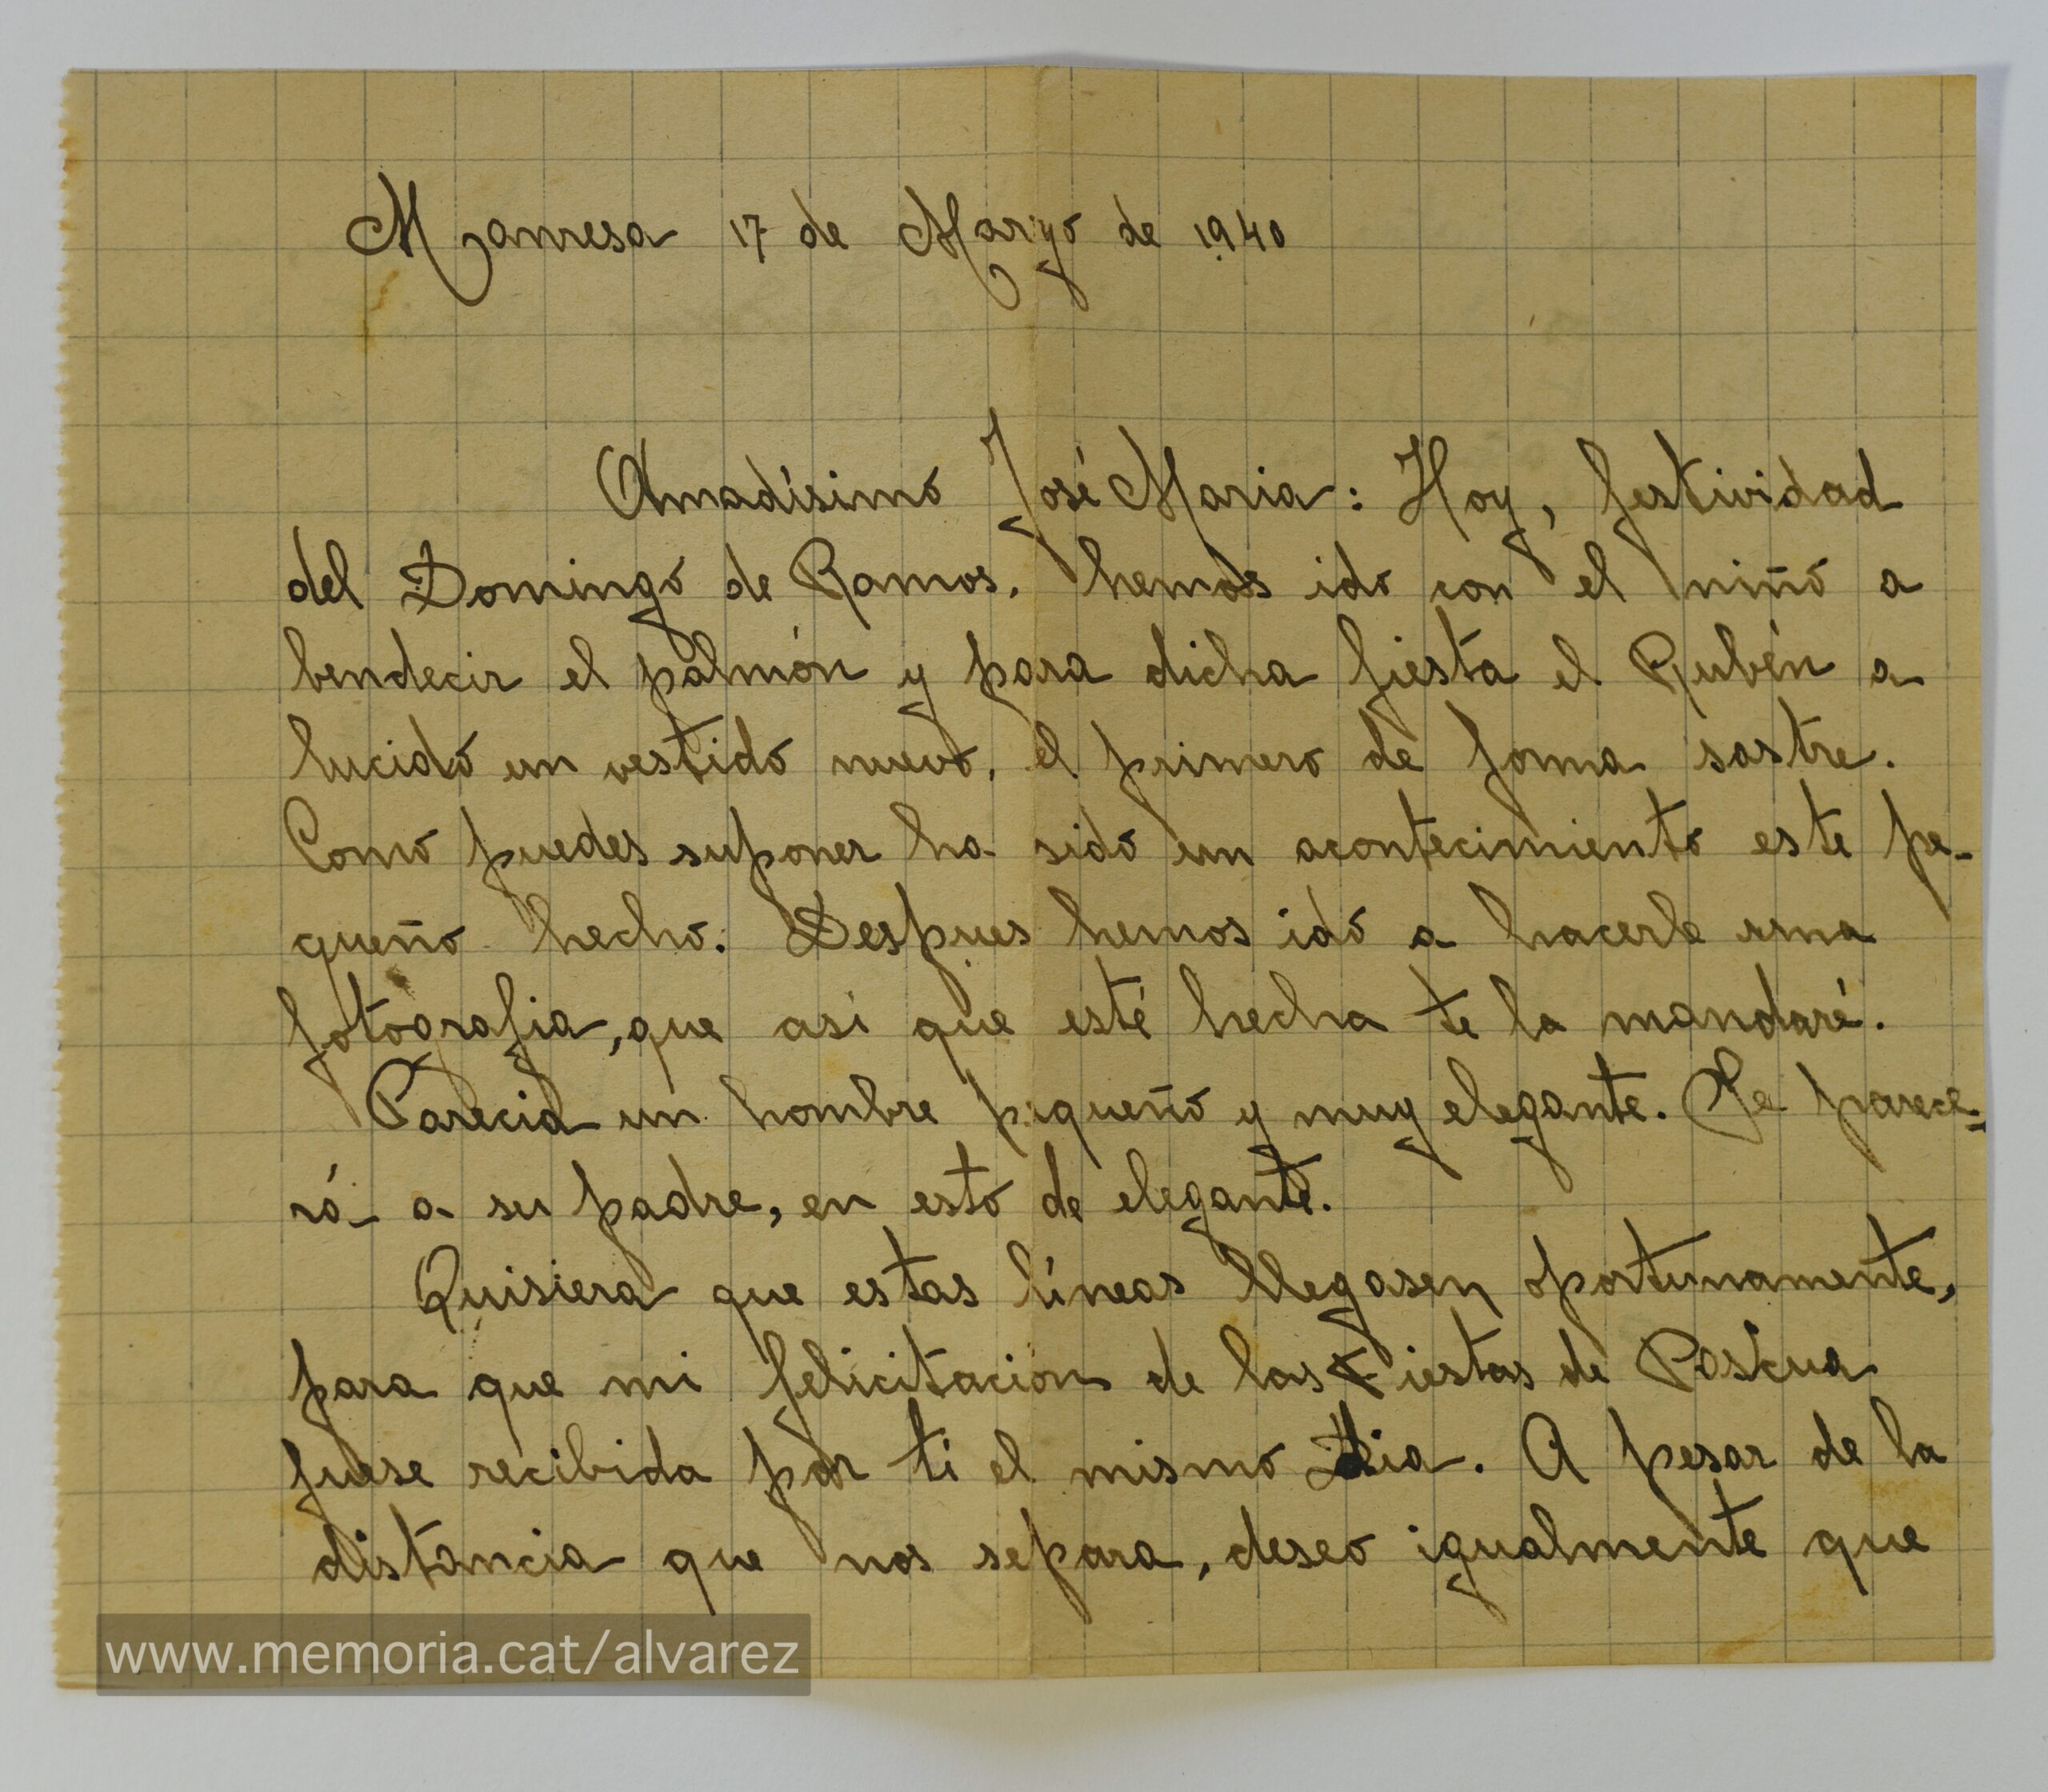 Manresa 17 de Marzo de 1940
Amadísimo José Maria: Hoy, festividad
del Domingo de Ramos, hemos ido con el niño a
bendecir el palmón y para dicha fiesta el Rubén a
lucido un vestido nuevo, el primero de forma sastre.
Como puedes suponer ha sido un acontecimiento este pe-
queño hecho. Despues hemos ido a hacerle una
fotografia, que asi que esté hecha te la mandaré.
Parecia un hombre pequeño y muy elegante. Se parece-
rá a su padre, en esto de elegante.
Quisiera que estas líneas llegasen oportunamente,
para que mi felicitación de las Fiestas de Pascua
fuese recibida por ti el mismo dia. A pesar de la
distancia que nos separa, deseo igualmente que
www.memoria.cat/alvarez